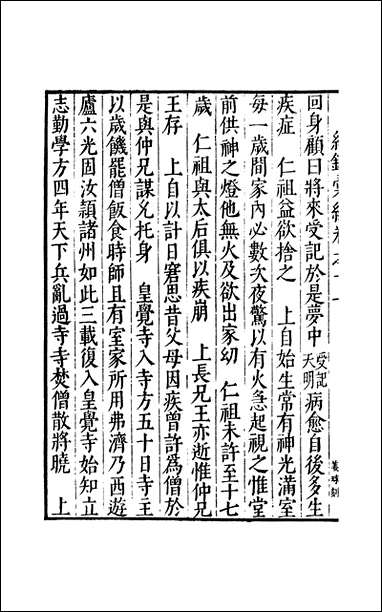 回身顧曰將來受記於是夢中受記天明病愈自後多生
疾症　仁祖益欲捨之　上自始生常有神光滿室
每一歲間家內必數次夜驚以有火急起視之惟堂
前供神之燈他無火及欲出家幼　仁祖未許至十七
歲　仁祖與太后俱以疾崩　上長兄王亦逝惟仲兄
王存　上自以計日窘思昔父母因疾曾許爲僧於
是與仲兄謀允托身　皇覺寺入寺方五十日寺主
以歲饑罷僧飯食時師且有室家所用弗濟乃西遊
廬六光固汝潁諸州如此三載復入皇覺寺始知立
志勤學方四年天下兵亂過寺寺焚僧散將曉　上